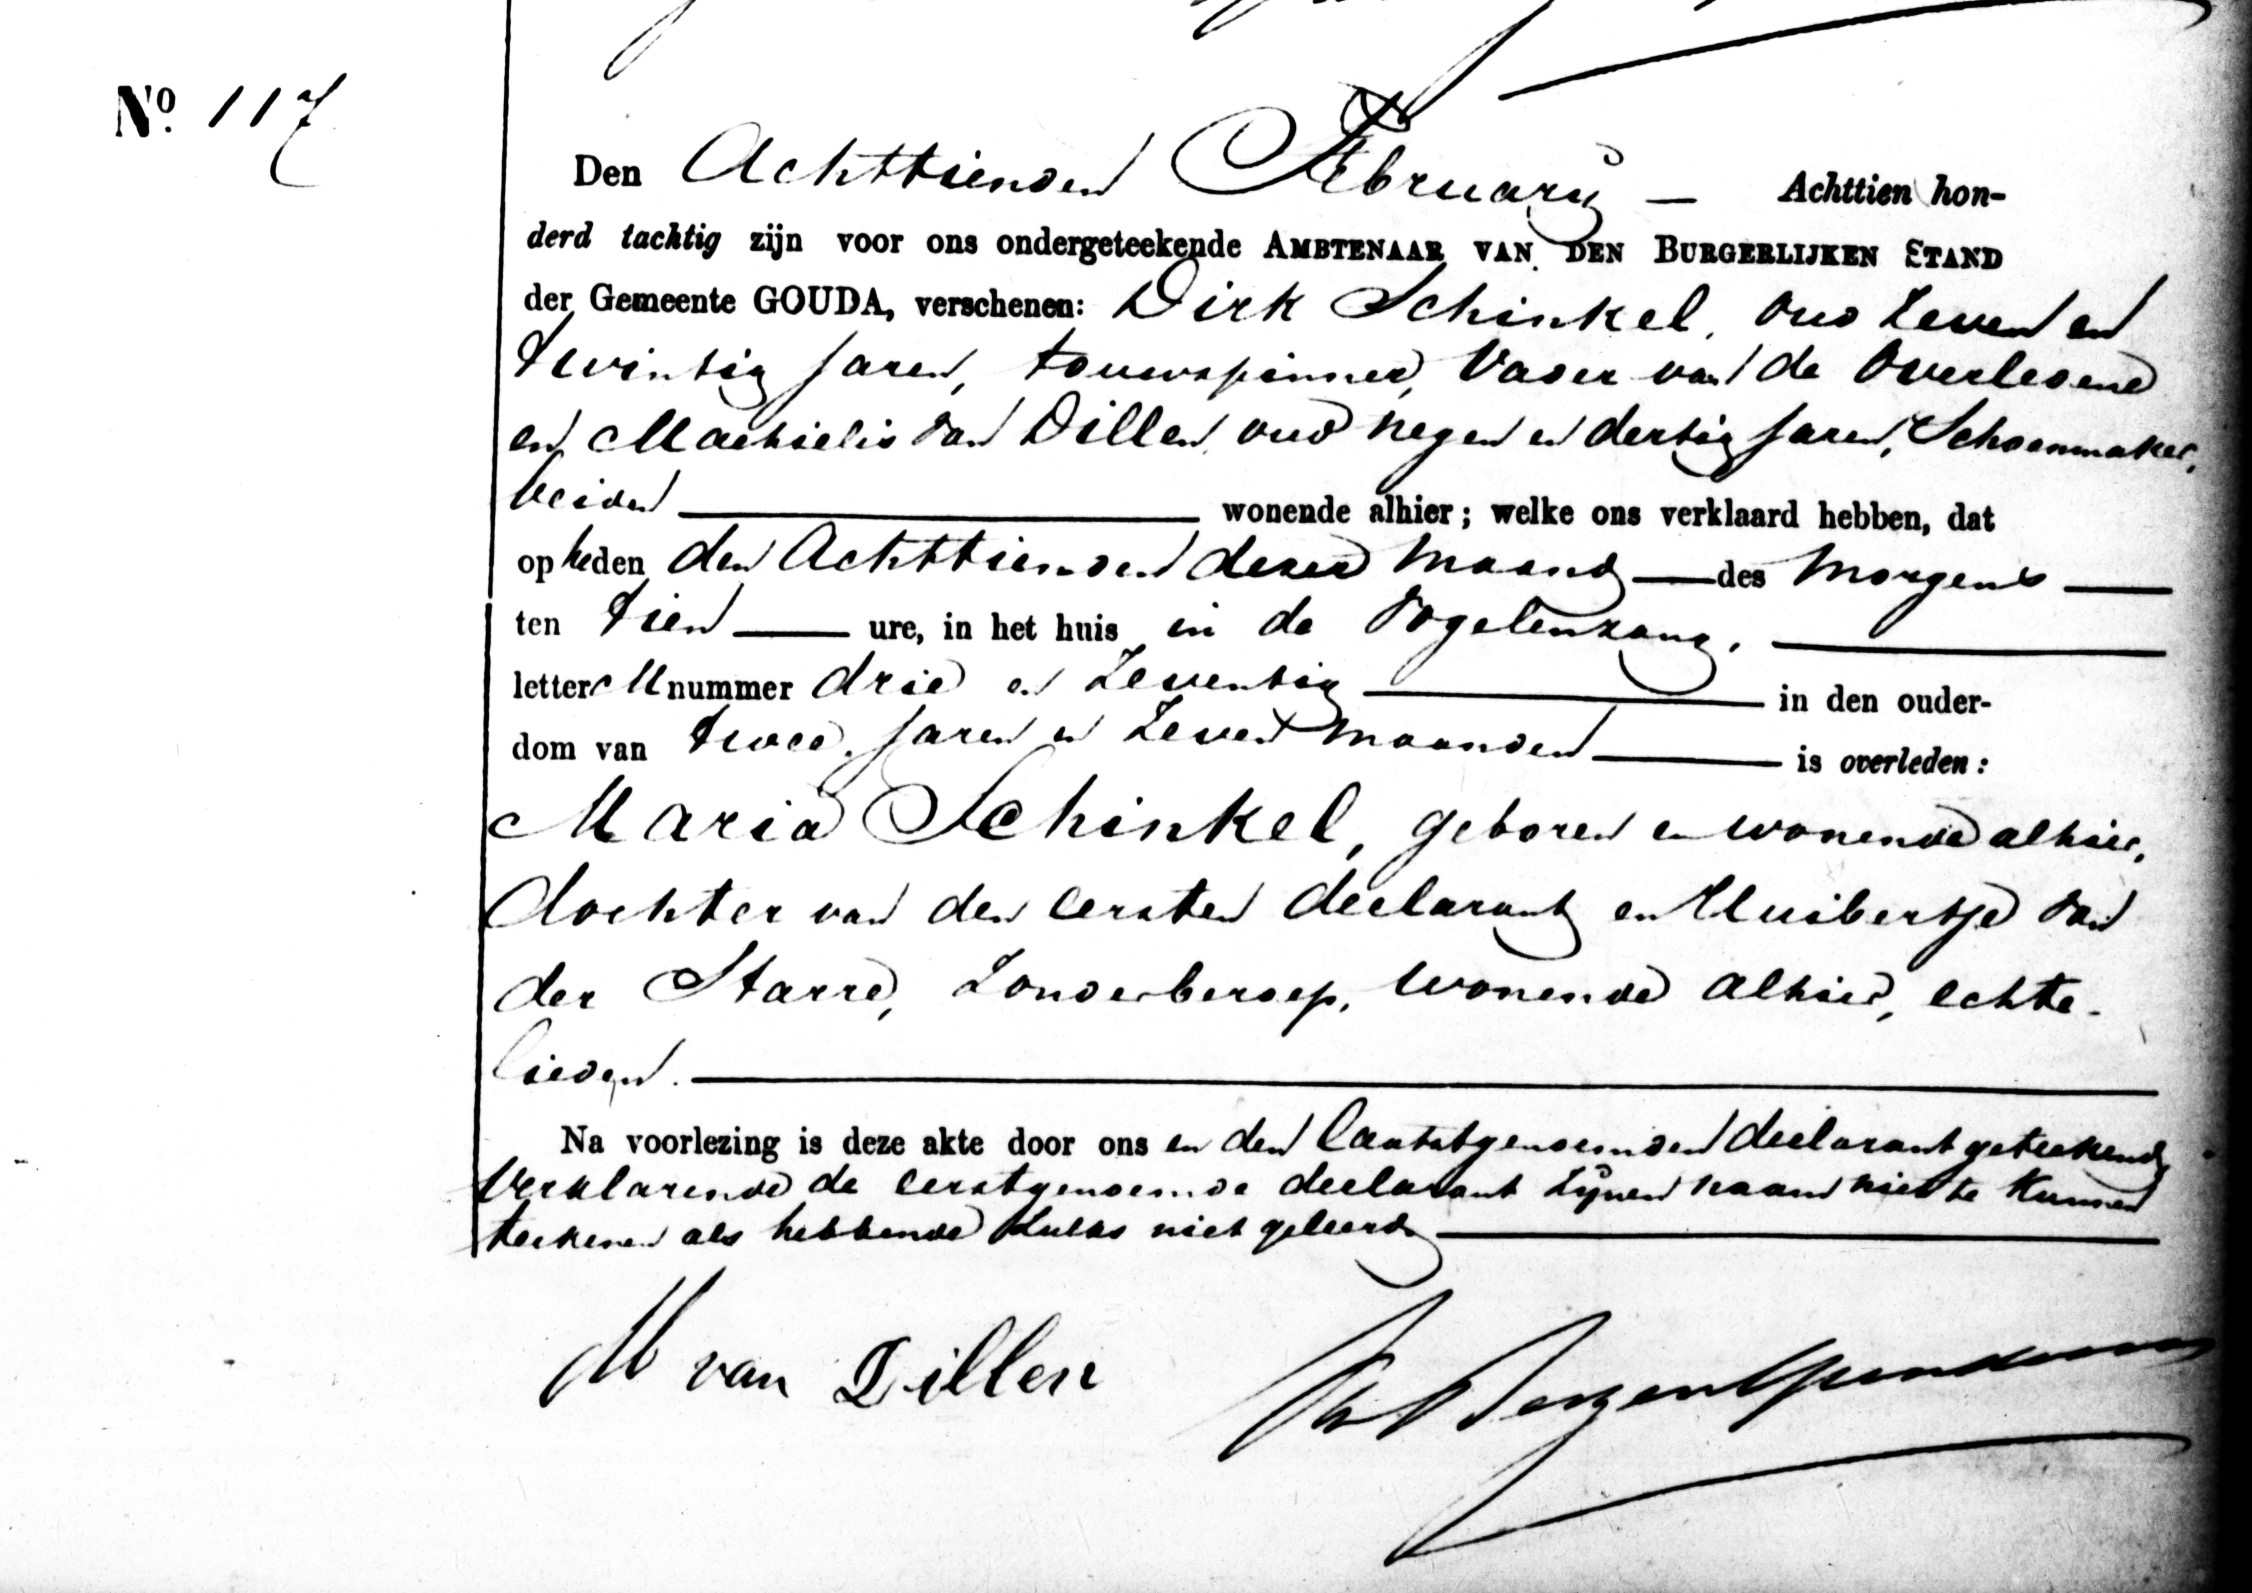 No. 117
Den Achttienden February — Achttien hon-
derd tachtig zijn voor ons ondergeteekende AMBTENAAR VAN DEN BURGERLIJKEN STAND
der Gemeente GOUDA, verschenen: Dirk Schinkel, oud Zeven en
twintig jaren, touwspinner, Vader van de Overledene
en Machielis van Dillen, oud negen en dertig jaren, Schoenmaker,
beiden wonende alhier; welke ons verklaard hebben, dat
op heden den Achttienden dezer maand des morgens
ten tien ure, in het huis in de Vogelenzang,
letter M nummer drie en Zeventig in den ouder-
dom van twee jaren en Zeven maanden is overleden:
Maria Schinkel, geboren en wonende alhier,
dochter van den eersten declarant en Huibertje van
der Starre, Zonder beroep, wonende alhier, echte-
lieden.
Na voorlezing is deze akte door ons en den laatstgenoemden declarant geteekend,
Verklarende de eerstgenoemde declarant Zijnen naam niet te Kunnen
teekenen als hebbende Zulks niet geleerd
M van Dillen